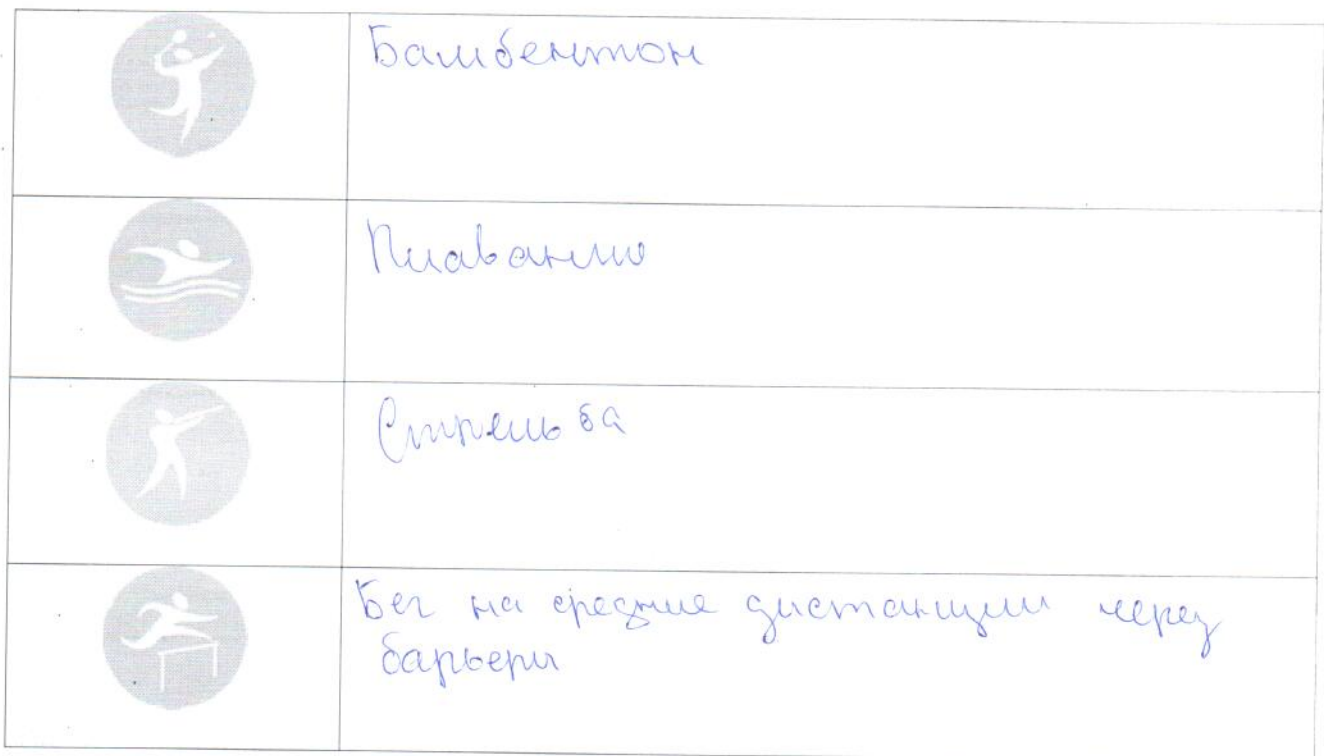 Бамбентон
Плавание
Стрельба
Бег на средние дистанции через
барьеры